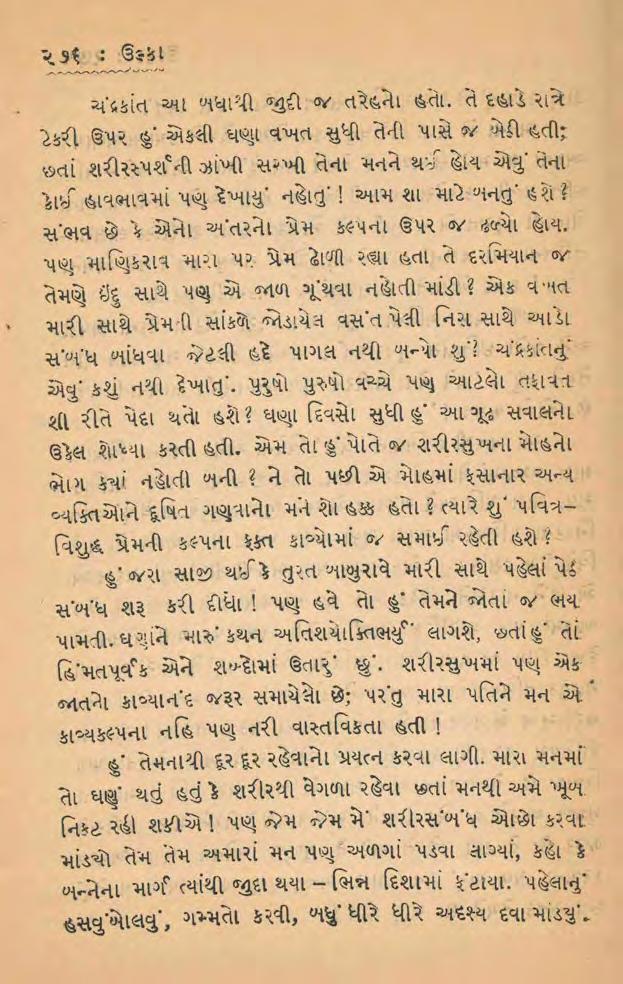 ૨૭૬ : ઉલ્કા
ચંદ્રકાંત આ બધાથી જુદી જ તરેહનો હતો. તે દહાડે રાત્રે
ટેકરી ઉપર હું એકલી ઘણા વખત સુધી તેની પાસે જ બેઠી હતી;
છતાં શરીરસ્પર્શની ઝાંખી સરખી તેના મનને થઈ હોય એવું તેના
કોઈ હાવભાવમાં પણ દેખાયું નહોતું ! આમ શા માટે બનતું હશે ?
સંભવ છે કે એનો અંતરનો પ્રેમ કલ્પના ઉપર જ ઢળ્યો હોય.
પણ માણિકરાવ મારા પર પ્રેમ ઢોળી રહ્યા હતા તે દરમિયાન જ
તેમણે ઇંદુ સાથે પણ એ જાળ ગૂંથવા નહોતી માંડી ? એક વખત
મારી સાથે પ્રેમની સાંકળે જોડાયેલ વસંત પેલી નિરા સાથે આડો
સંબંધ બાંધવા જેટલી હદે પાગલ નથી બન્યો શું ? ચંદ્રકાંતનું
એવું કશું નથી દેખાતું. પુરુષો પુરુષો વચ્ચે પણ આટલો તફાવત
શી રીતે પેદા થતો હશે ? ઘણા દિવસો સુધી હું આ ગૂઢ સવાલનો
ઉકેલ શોધ્યા કરતી હતી. એમ તો હું પોતે જ શરીરસુખના મોહનો
ભોગ ક્યાં નહોતી બની ? ને તો પછી એ મોહમાં ફસાનાર અન્ય
વ્યક્તિઓને દૂષિત ગણવાનો મને શો હક્ક હતો ? ત્યારે શું પવિત્ર–
વિશુદ્ધ પ્રેમની કલ્પના ફક્ત કાવ્યોમાં જ સમાઈ રહેતી હશે ?
હું જરા સાજી થઈ કે તુરત બાબુરાવે મારી સાથે પહેલાં પેઠે
સંબંધ શરૂ કરી દીધા ! પણ હવે તો હું તેમને જોતાં જ ભય
પામતી. ઘણાંને મારું કથન અતિશયોક્તિભર્યું લાગશે, છતાં હું તો
હિંમતપૂર્વક એને શબ્દોમાં ઉતારું છું. શરીરસુખમાં પણ એક
જાતનો કાવ્યાનંદ જરૂર સમાયેલો છે; પરંતુ મારા પતિને મન એ
કાવ્યકલ્પના નહિ પણ નરી વાસ્તવિકતા હતી !
હું તેમનાથી દૂર દૂર રહેવાનો પ્રયત્ન કરવા લાગી. મારા મનમાં
તો ઘણું થતું હતું કે શરીરથી વેગળા રહેવા છતાં મનથી અમે ખૂબ
નિકટ રહી શકીએ ! પણ જેમ જેમ મેં શરીરસંબંધ ઓછો કરવા
માંડ્યો તેમ તેમ અમારાં મન પણ અળગાં પડવા લાગ્યાં, કહો કે
બન્નેના માર્ગ ત્યાંથી જુદા થયા – ભિન્ન દિશામાં ફંટાયા. પહેલાનું
હસવુંબોલવું, ગમ્મતો કરવી, બધું ધીરે ધીરે અદૃશ્ય થવા માંડયું.